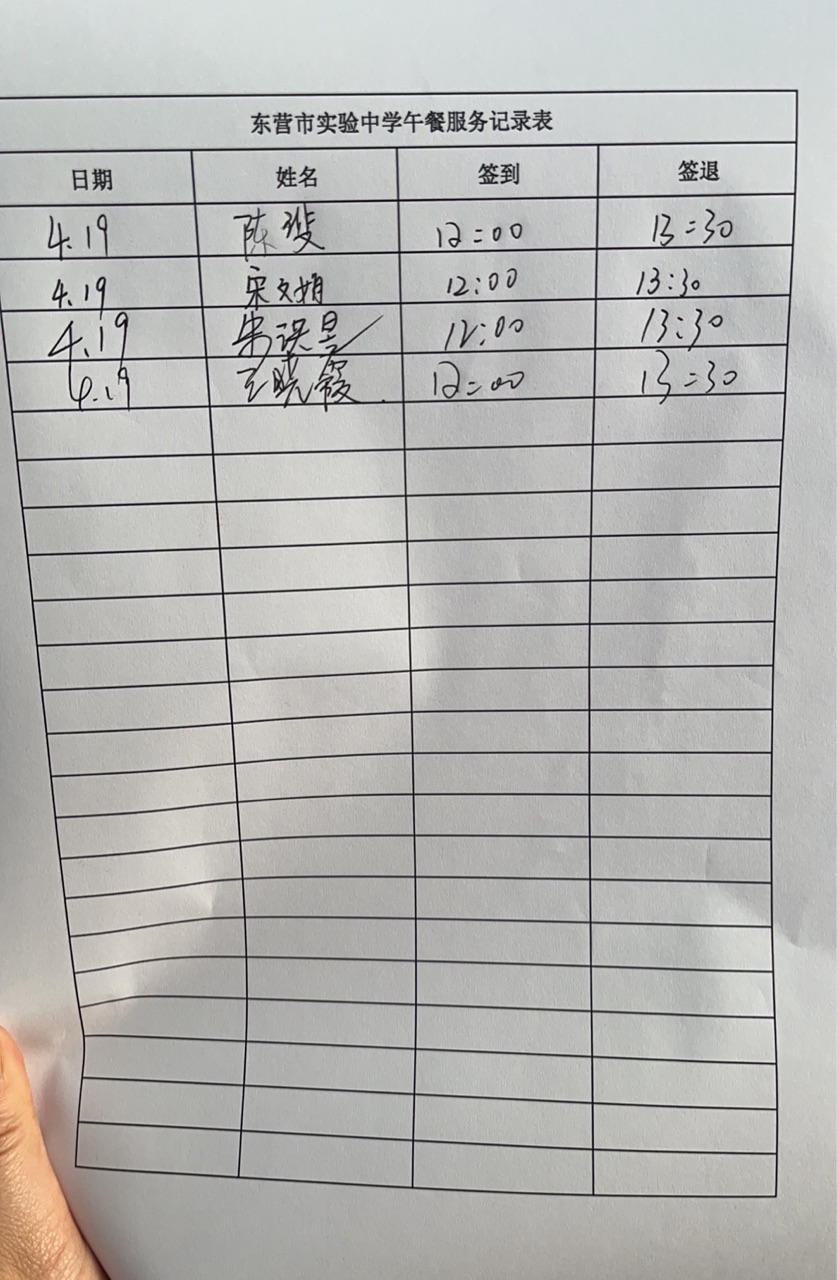 东营市实验中学午餐服务记录表
日期 姓名 签到 签退
4.19 陈 12:00 13:30
4.19 宋文娟 12:00 13:30
4.19 12:00 13:30
4.19 王晓霞 12:00 13:30